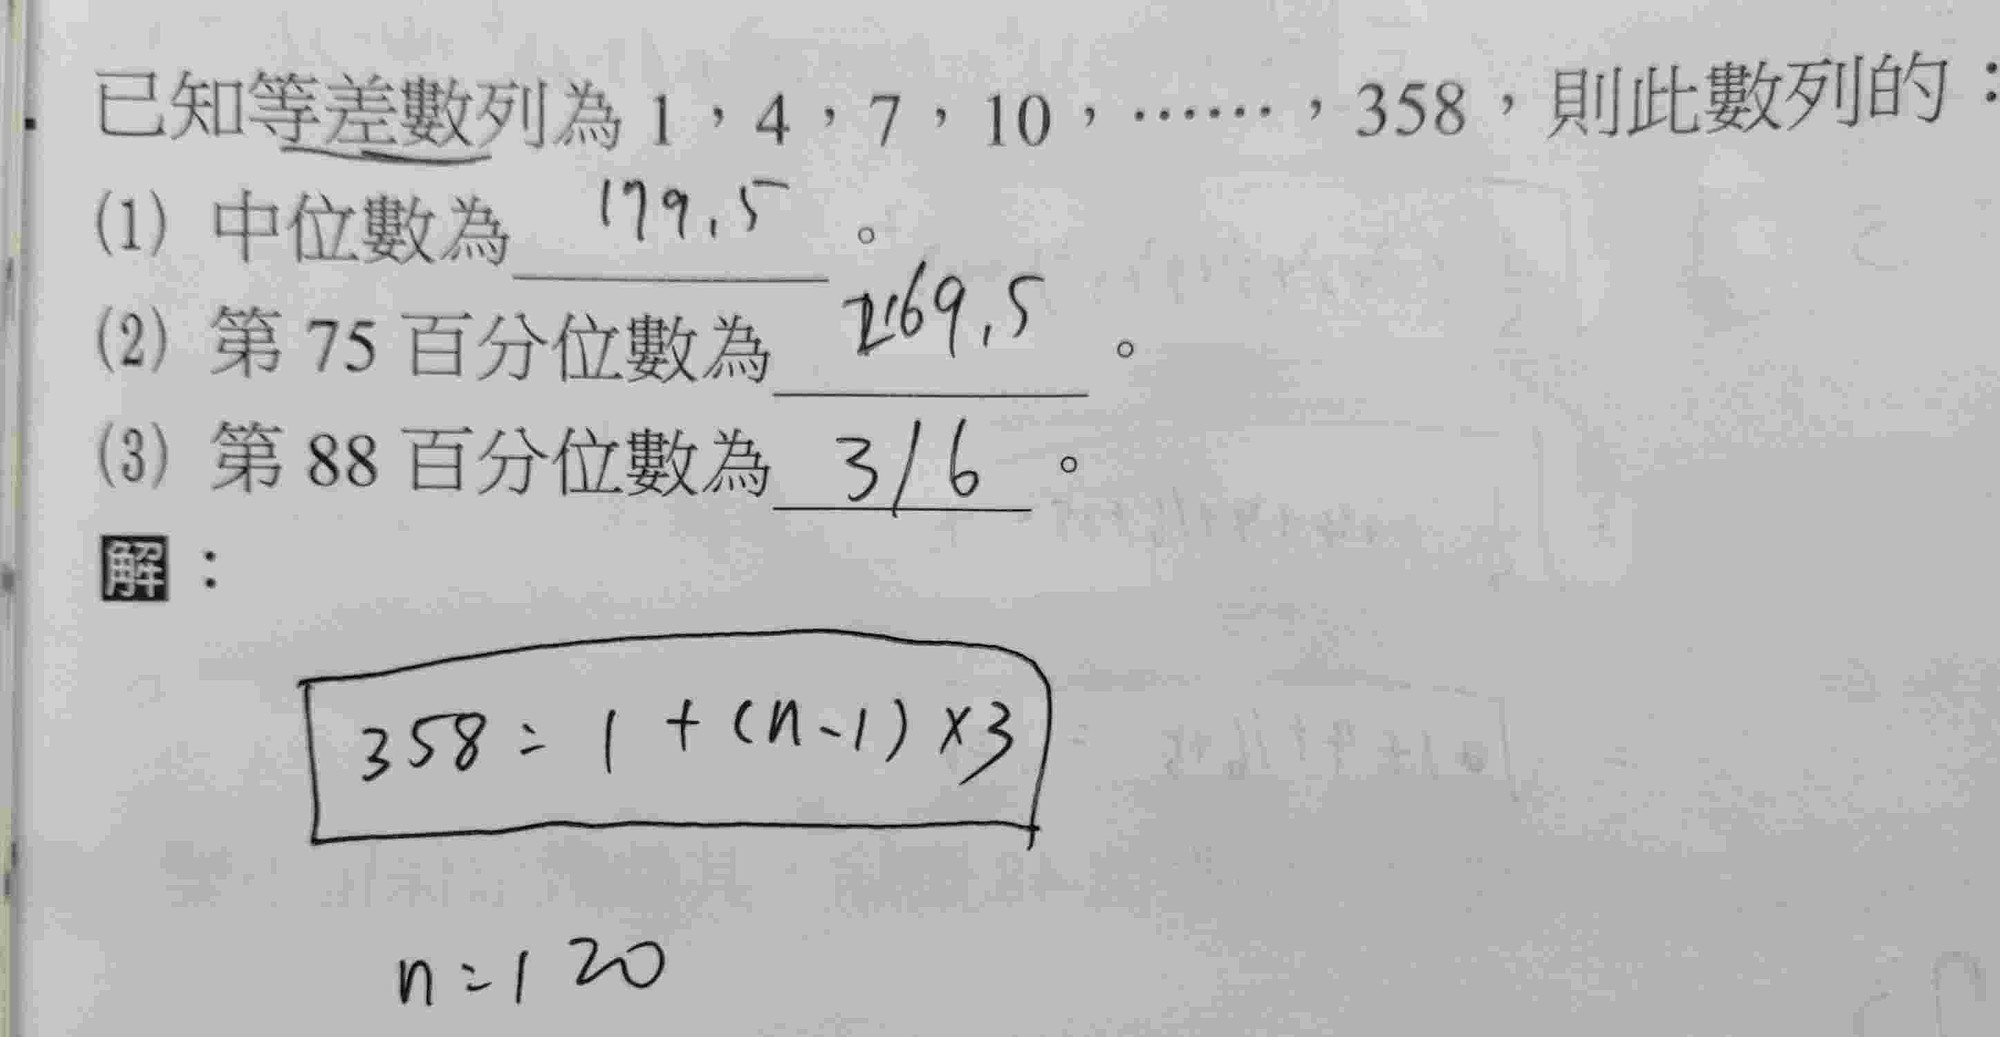 已知等差數列為 1，4，7，10，……，358，則此數列的：
(1) 中位數為 179.5 。
(2) 第 75 百分位數為 269.5 。
(3) 第 88 百分位數為 316 。
解：
358 = 1 + (n-1) ×3
n = 120